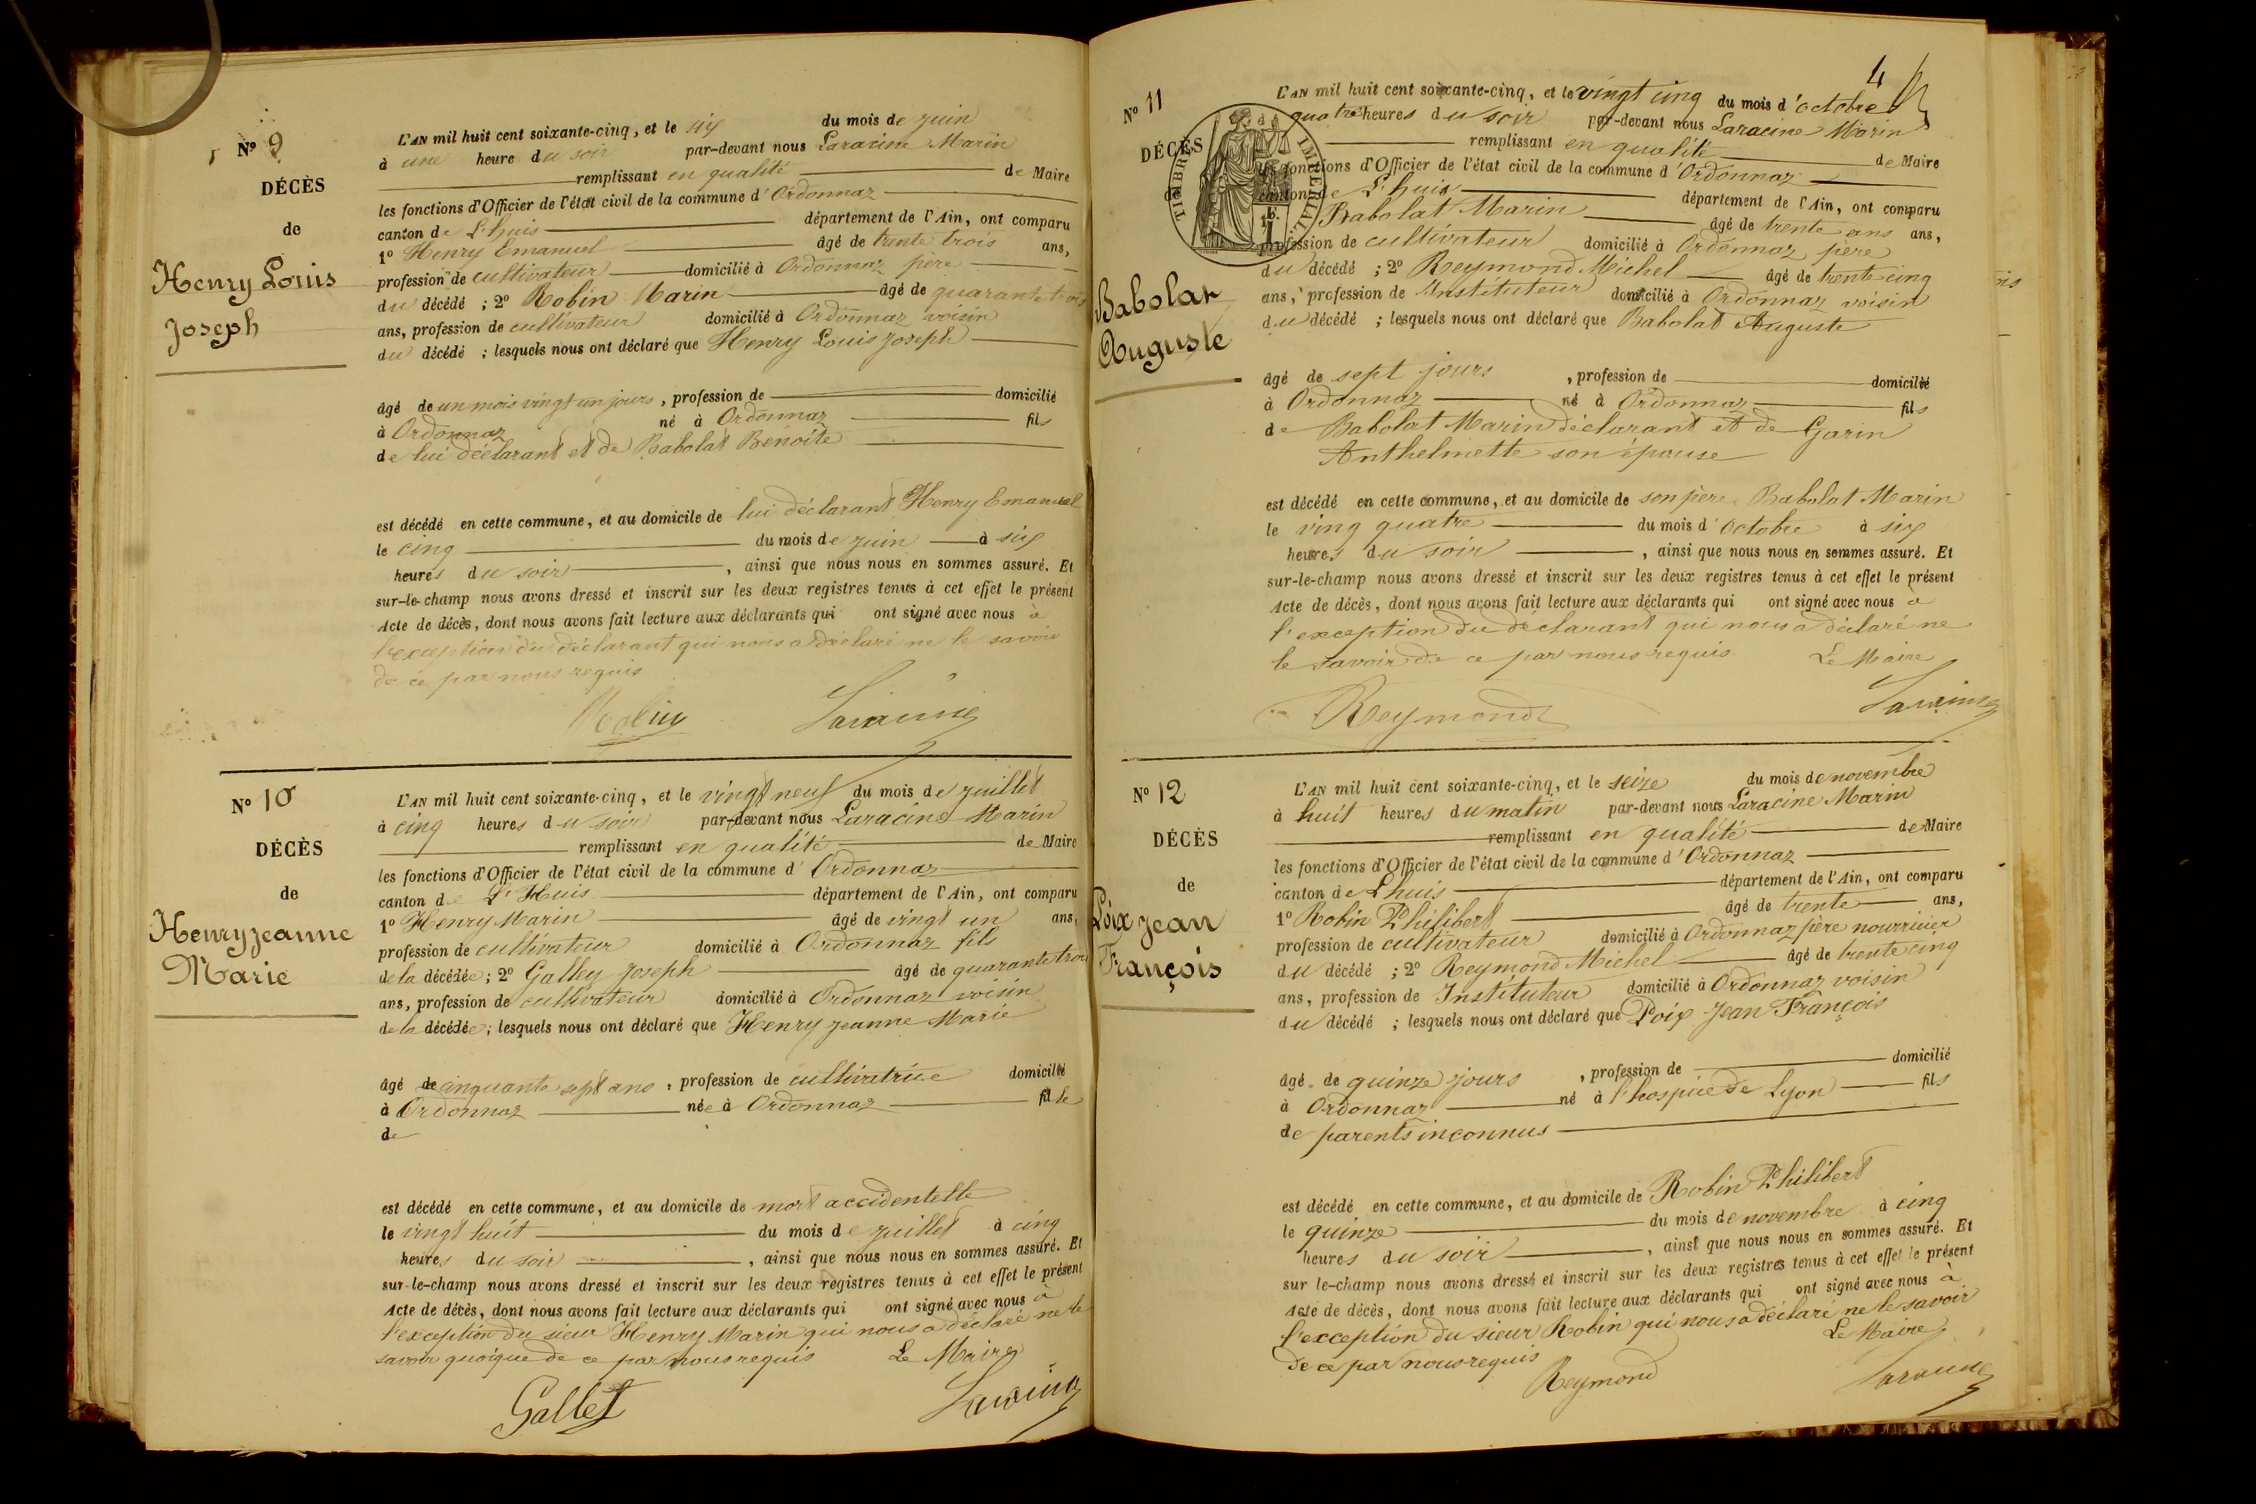 N° 9
DÉCÈS
de
Henry Louis
Joseph
L'AN mil huit cent soixante-cinq, et le six du mois de juin
à une heure du soir par-devant nous Laracine Marin
remplissant en qualité de Maire
les fonctions d'Officier de l'état civil de la commune d'Ordonnaz
canton de L'huis département de l'Ain, ont comparu
1° Henry Emanuel âgé de trente trois ans,
profession de cultivateur domicilié à Ordonnaz père
du décédé ; 2° Robin Marin âgé de quarante trois
ans, profession de cultivateur domicilié à Ordonnaz voisin
du décédé ; lesquels nous ont déclaré que Henry Louis Joseph
âgé de un mois vingt un jours, profession de domicilié
à Ordonnaz né à Ordonnaz fils
de lui déclarant et de Babolat Benoite
est décédé en cette commune, et au domicile de lui déclarant Henry Emanuel
le cinq du mois de juin à six
heures du soir, ainsi que nous nous en sommes assuré. Et
sur-le-champ nous avons dressé et inscrit sur les deux registres tenus à cet effet le présent
Acte de décès, dont nous avons fait lecture aux déclarants qui ont signé avec nous à
l'exception du déclarant qui nous a déclaré ne le savoir
de ce par nous requis
Laracine
N° 10
DÉCÈS
de
Henry jeanne
Marie
L'AN mil huit cent soixante-cinq, et le vingt neuf du mois de juillet
à cinq heures du soir par-devant nous Laracine Marin
remplissant en qualité de Maire
les fonctions d'Officier de l'état civil de la commune d'Ordonnaz
canton de L'Huis département de l'Ain, ont comparu
1° Henry Marin âgé de vingt un ans,
profession de cultivateur domicilié à Ordonnaz fils
de la décédée ; 2° Galley Joseph âgé de quarante trois
ans, profession de cultivateur domicilié à Ordonnaz voisin
de la décédée ; lesquels nous ont déclaré que Henry jeanne Marie
âgé de cinquante sept ans, profession de cultivatrice domicilié
à Ordonnaz née à Ordonnaz fille
de
est décédé en cette commune, et au domicile de mort accidentelle
le vingt huit du mois de juillet à cinq
heures du soir, ainsi que nous nous en sommes assuré. Et
sur-le-champ nous avons dressé et inscrit sur les deux registres tenus à cet effet le présent
Acte de décès, dont nous avons fait lecture aux déclarants qui ont signé avec nous à
l'exception du sieur Henry Marin qui nous a déclaré ne le
savoir quoique de ce par nous requis Le Maire
Gallet Laracine
4
N° 11
DÉCÈS
de
TIMBRE IMPERIAL
Babolat
Auguste
L'AN mil huit cent soixante-cinq, et le vingt cinq du mois d'octobre
quatre heures du soir par-devant nous Laracine Marin
remplissant en qualité de Maire
les fonctions d'Officier de l'état civil de la commune d'Ordonnaz
canton de L'huis département de l'Ain, ont comparu
Babolat Marin âgé de trente ans ans,
profession de cultivateur domicilié à Ordonnaz père
du décédé ; 2° Reymond Michel âgé de trente cinq
ans, profession de Instituteur domicilié à Ordonnaz voisin
du décédé ; lesquels nous ont déclaré que Babolat Auguste
âgé de sept jours, profession de domicilié
à Ordonnaz né à Ordonnaz fils
de Babolat Marin déclarant et de Garin
Anthelmette son épouse
est décédé en cette commune, et au domicile de son père Babolat Marin
le ving quatre du mois d'octobre à six
heures du soir, ainsi que nous nous en sommes assuré. Et
sur-le-champ nous avons dressé et inscrit sur les deux registres tenus à cet effet le présent
Acte de décès, dont nous avons fait lecture aux déclarants qui ont signé avec nous à
l'exception du déclarant qui nous a déclaré ne
le savoir de ce par nous requis Le Maire
Reymond Laracine
N° 12
DÉCÈS
de
Poix Jean
François
L'AN mil huit cent soixante-cinq, et le seize du mois de novembre
à huit heures du matin par-devant nous Laracine Marin
remplissant en qualité de Maire
les fonctions d'Officier de l'état civil de la commune d'Ordonnaz
canton de Lhuis département de l'Ain, ont comparu
1° Robin Philibert âgé de trente ans,
profession de cultivateur domicilié à Ordonnaz père nourricier
du décédé ; 2° Reymond Michel âgé de trente cinq
ans, profession de Instituteur domicilié à Ordonnaz voisin
du décédé ; lesquels nous ont déclaré que Poix Jean François
âgé de quinze jours, profession de domicilié
à Ordonnaz né à l'hospice de Lyon fils
de parents inconnus
est décédé en cette commune, et au domicile de Robin Philibert
le quinze du mois de novembre à cinq
heures du soir, ainsi que nous nous en sommes assuré. Et
sur le-champ nous avons dressé et inscrit sur les deux registres tenus à cet effet le présent
Acte de décès, dont nous avons fait lecture aux déclarants qui ont signé avec nous à
l'exception du sieur Robin qui nous a déclaré ne le savoir
de ce par nous requis Le Maire
Reymond Laracine